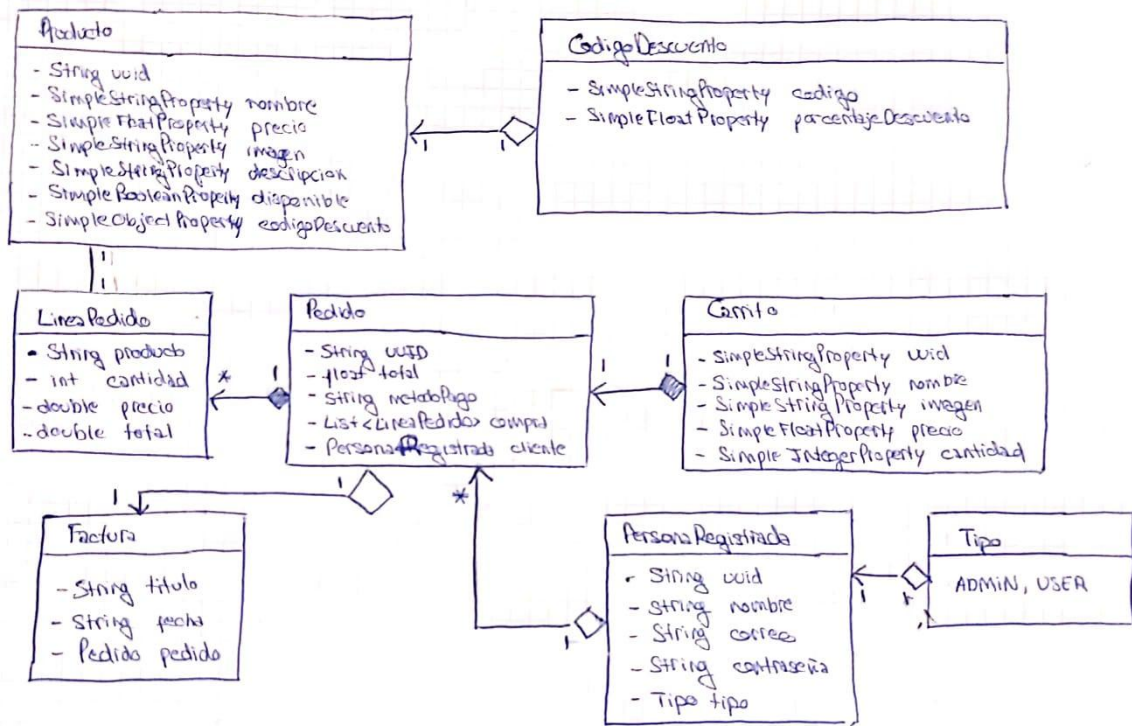 Producto
- String uuid
- SimpleStringProperty nombre
- SimpleFloatProperty precio
- SimpleStringProperty imagen
- SimpleStringProperty descripcion
- SimpleBooleanProperty disponible
- SimpleObjectProperty codigoDescuento
1
1
CodigoDescuento
- SimpleStringProperty codigo
- SimpleFloatProperty porcentajeDescuento
1
1
LineaPedido
- String producto
- int cantidad
- double precio
- double total
*
1
Pedido
- String UUID
- float total
- String metodoPago
- List<LineaPedido> compra
- PersonaRegistrada cliente
1
1
Carrito
- SimpleStringProperty uuid
- SimpleStringProperty nombre
- SimpleStringProperty imagen
- SimpleFloatProperty precio
- SimpleIntegerProperty cantidad
1
1
*
Factura
- String titulo
- String fecha
- Pedido pedido
1
PersonaRegistrada
- String uuid
- String nombre
- String correo
- String contraseña
- Tipo tipo
1
1
Tipo
ADMIN, USER